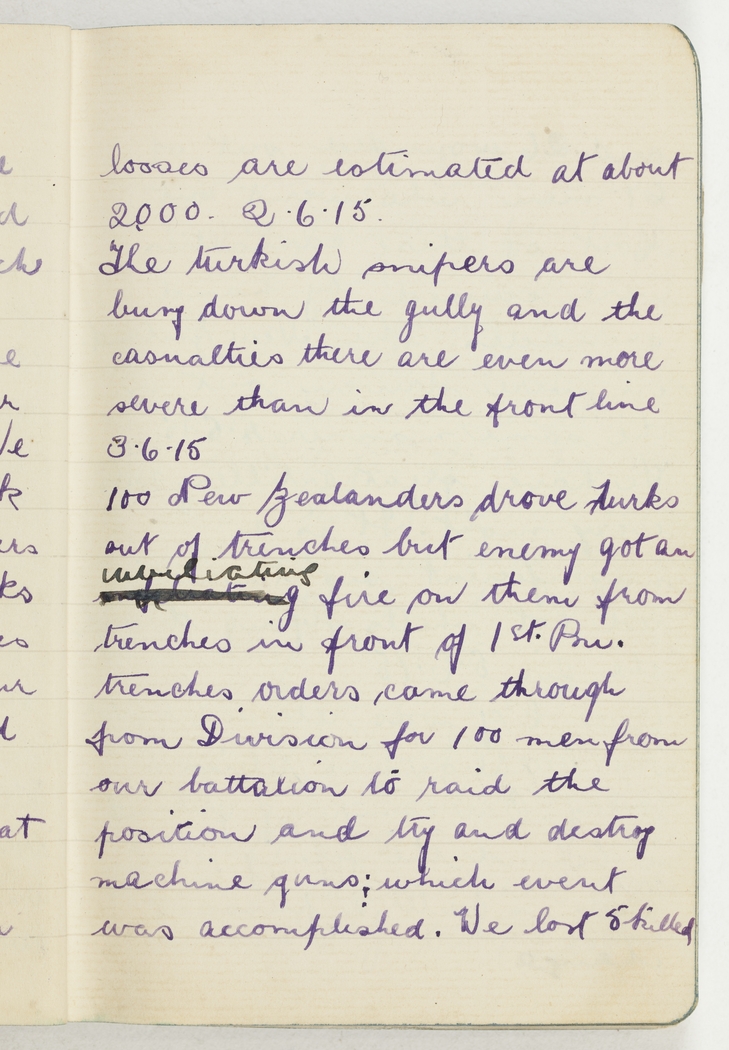 losses are estimated at about
2000. 2.6.15.
The turkish snipers are
busy down the gully and the
casualties there are even more
severe than in the front line
3.6.15
100 New Zealanders drove turks
out of trenches but enemy got an
fire on them from
trenches in front of 1st. Bn.
trenches orders came through
from Division for 100 men from
our battalion to raid the
position and try and destroy
machine guns; which event
was accomplished. We lost 5 killed